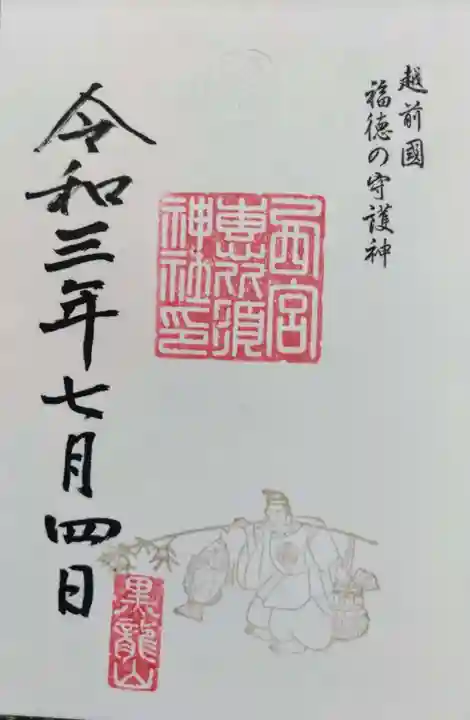 越前國
福徳の守護神
西宮
恵比須
神社印
令和三年七月四日
黒龍山